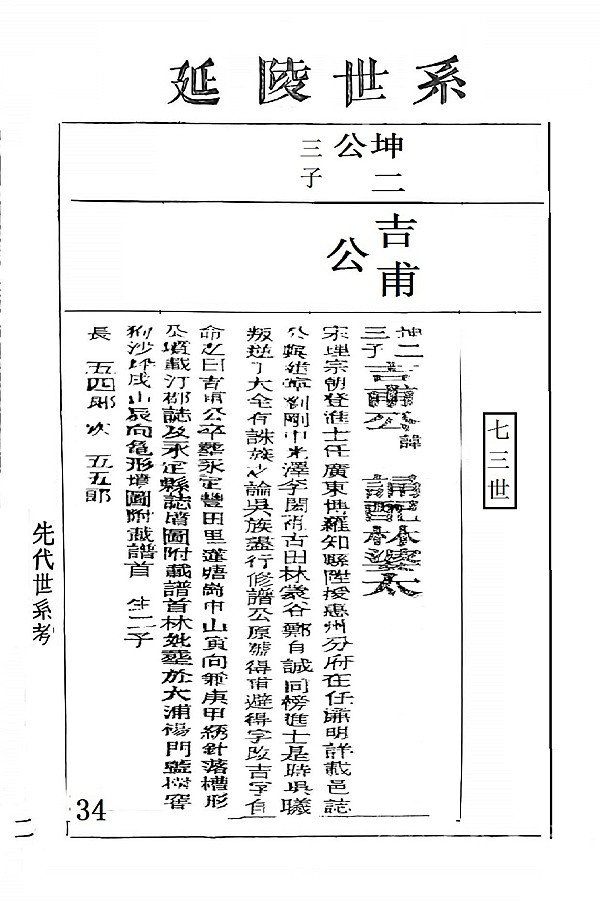 延陵世系
坤二
公
三子
吉甫
公
七三世
坤二
三子
吉甫公
諱
誦配林婆太
宋理宗朝登進士任廣東博羅知縣陞授惠州分府在任肅明詳載邑誌
公與建寧劉剛中光澤李閎祖古田林裳谷鄭自誠同榜進士是時吳曦
叛逆丁大全有誅族之論吳族盡行修譜公原號得甫避得字改吉字自
命之曰吉甫公卒塟永定豐田里蓮塘崗巾山寅向兼庚甲綉針落槽形
公墳載汀郡誌及永定縣誌墳圖附載譜首林妣塟於大浦楊門藍樹窖
沙坪戌山辰向龜形墳圖附載譜首 生二子
長 五四郎 次 五五郎
先代世系考
34